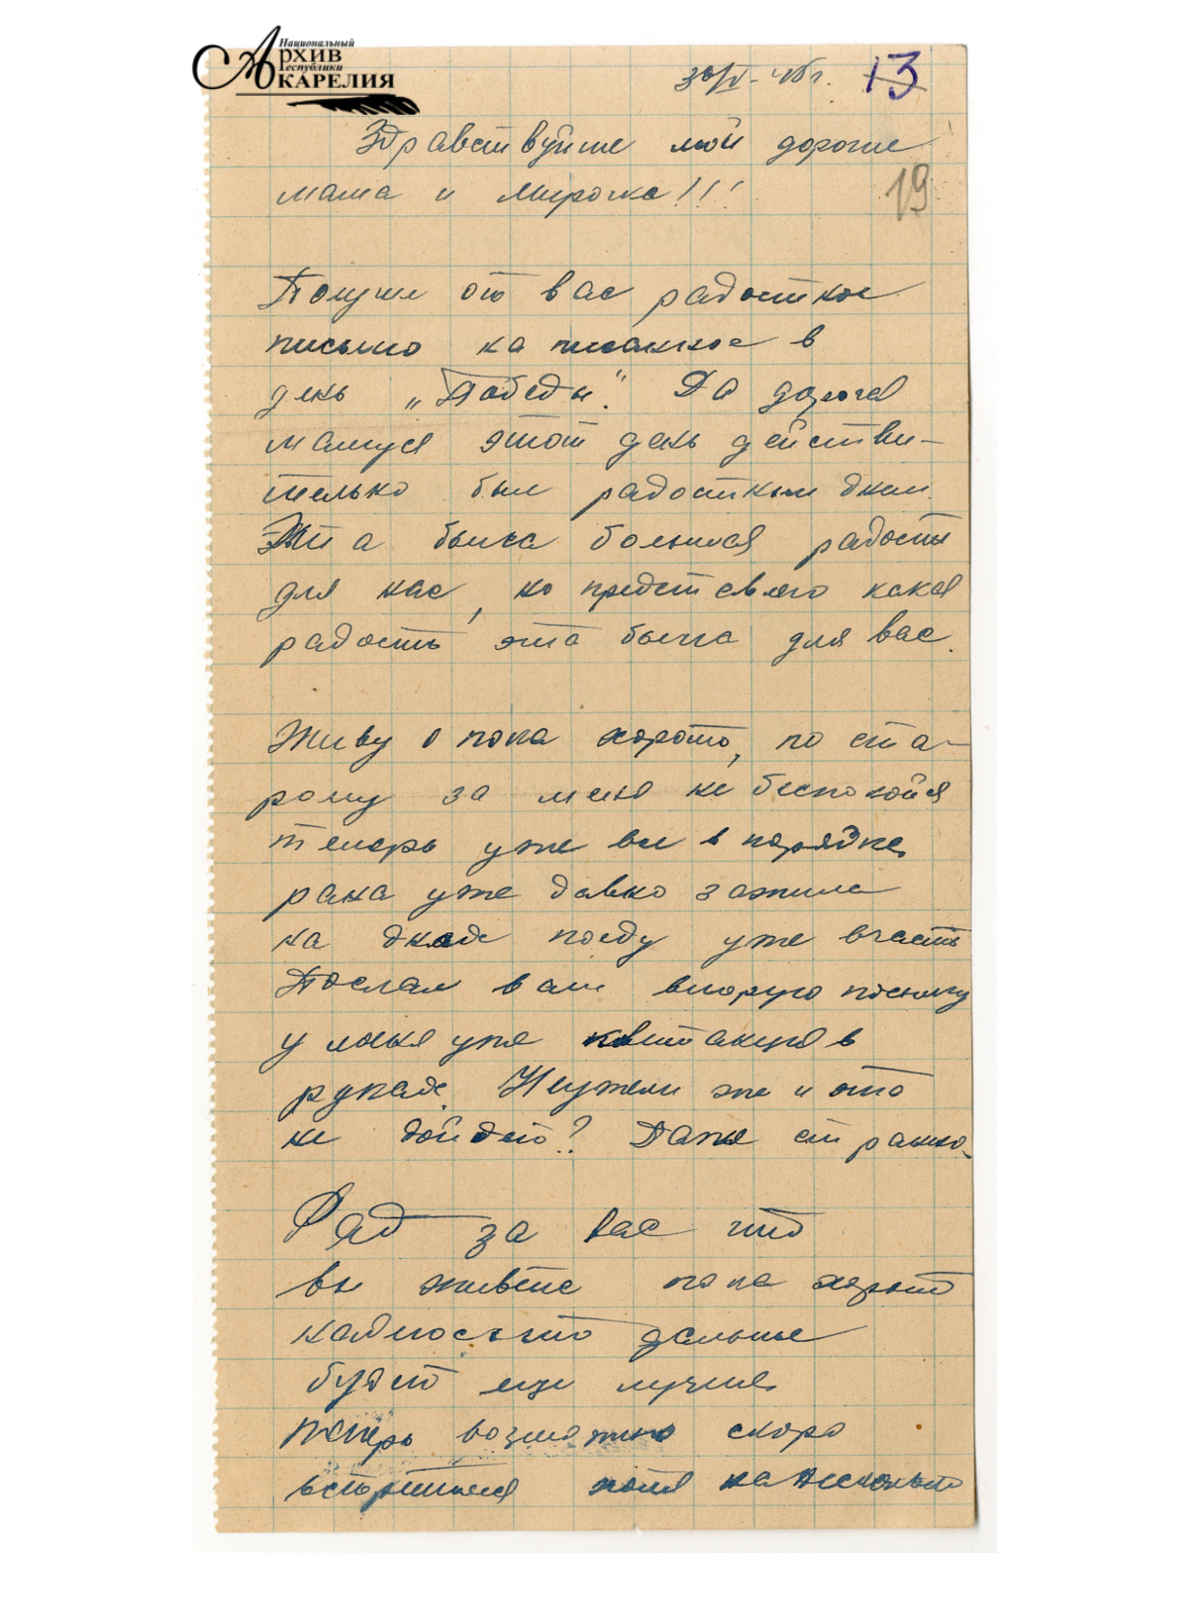 Национальный
Архив
Республики
Карелия
30/V-45г. 13
Здравствуйте мои дорогие
мама и Мирочка!!!
19
Получил от вас радостное
письмо написанное в
день „Победы". Да дорогая
мамуся этот день действи-
тельно был радостным днем.
Эта была большая радость
для нас, но представляю какая
радость эта была для вас.
Живу я пока хорошо, по ста-
рому за меня не беспокойся
теперь уже все в порядке,
рана уже давно зажила
на днях поеду уже в часть
Послал вам вторую посылку
у меня уже квитанция в
руках. Неужели же и это
не дойдет? Даже странно.
Рад за вас что
вы живете пока хорошо
надеюсь что дальше
будет еще лучше.
теперь возможно скоро
встретимся хотя на несколько